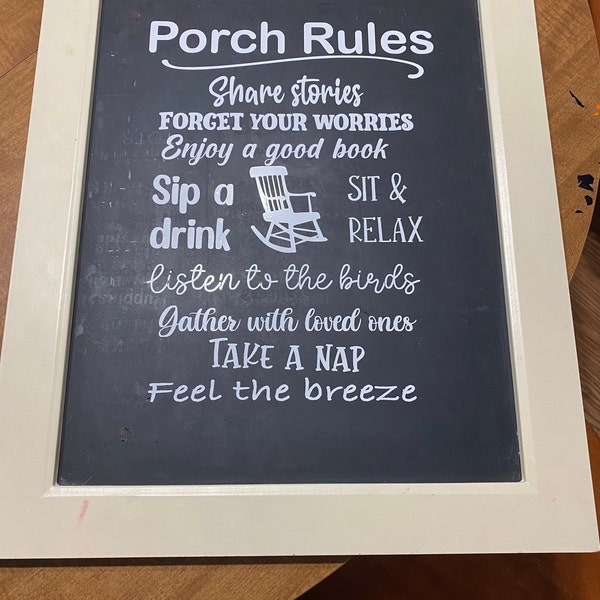 Porch Rules
Share stories
FORGET YOUR WORRIES
Enjoy a good book
Sip a drink
SIT & RELAX
listen to the birds
Gather with loved ones
TAKE A NAP
Feel the breeze